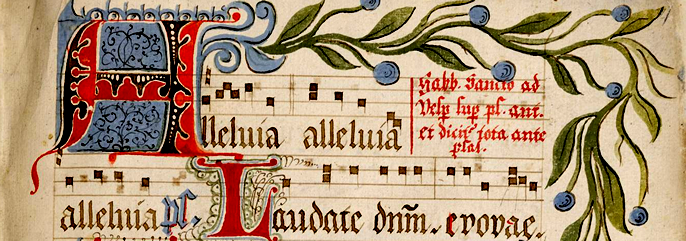 Alleluia alleluia
Sabb. Sancto ad
Vesp. sup. ps. ant.
et dicit. tota ante
psal.
alleluia ps. Laudate dnm. evovae.